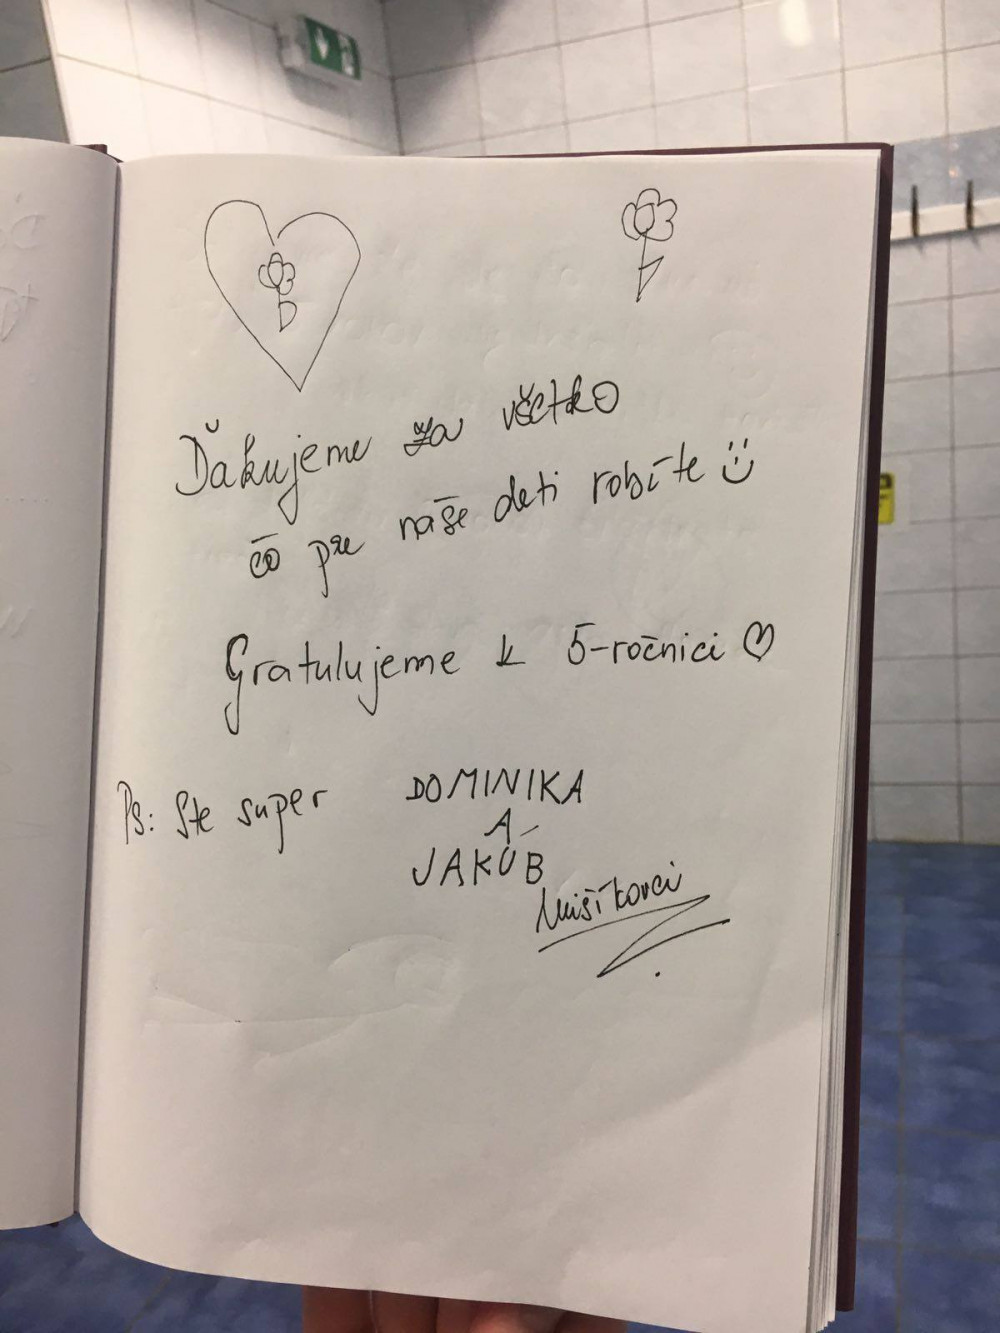 Ďakujeme za všetko
čo pre naše deti robíte
Gratulujeme k 5-ročnici
Ps: Ste super
DOMINIKA
A
JAKÚB
Mišíkovci